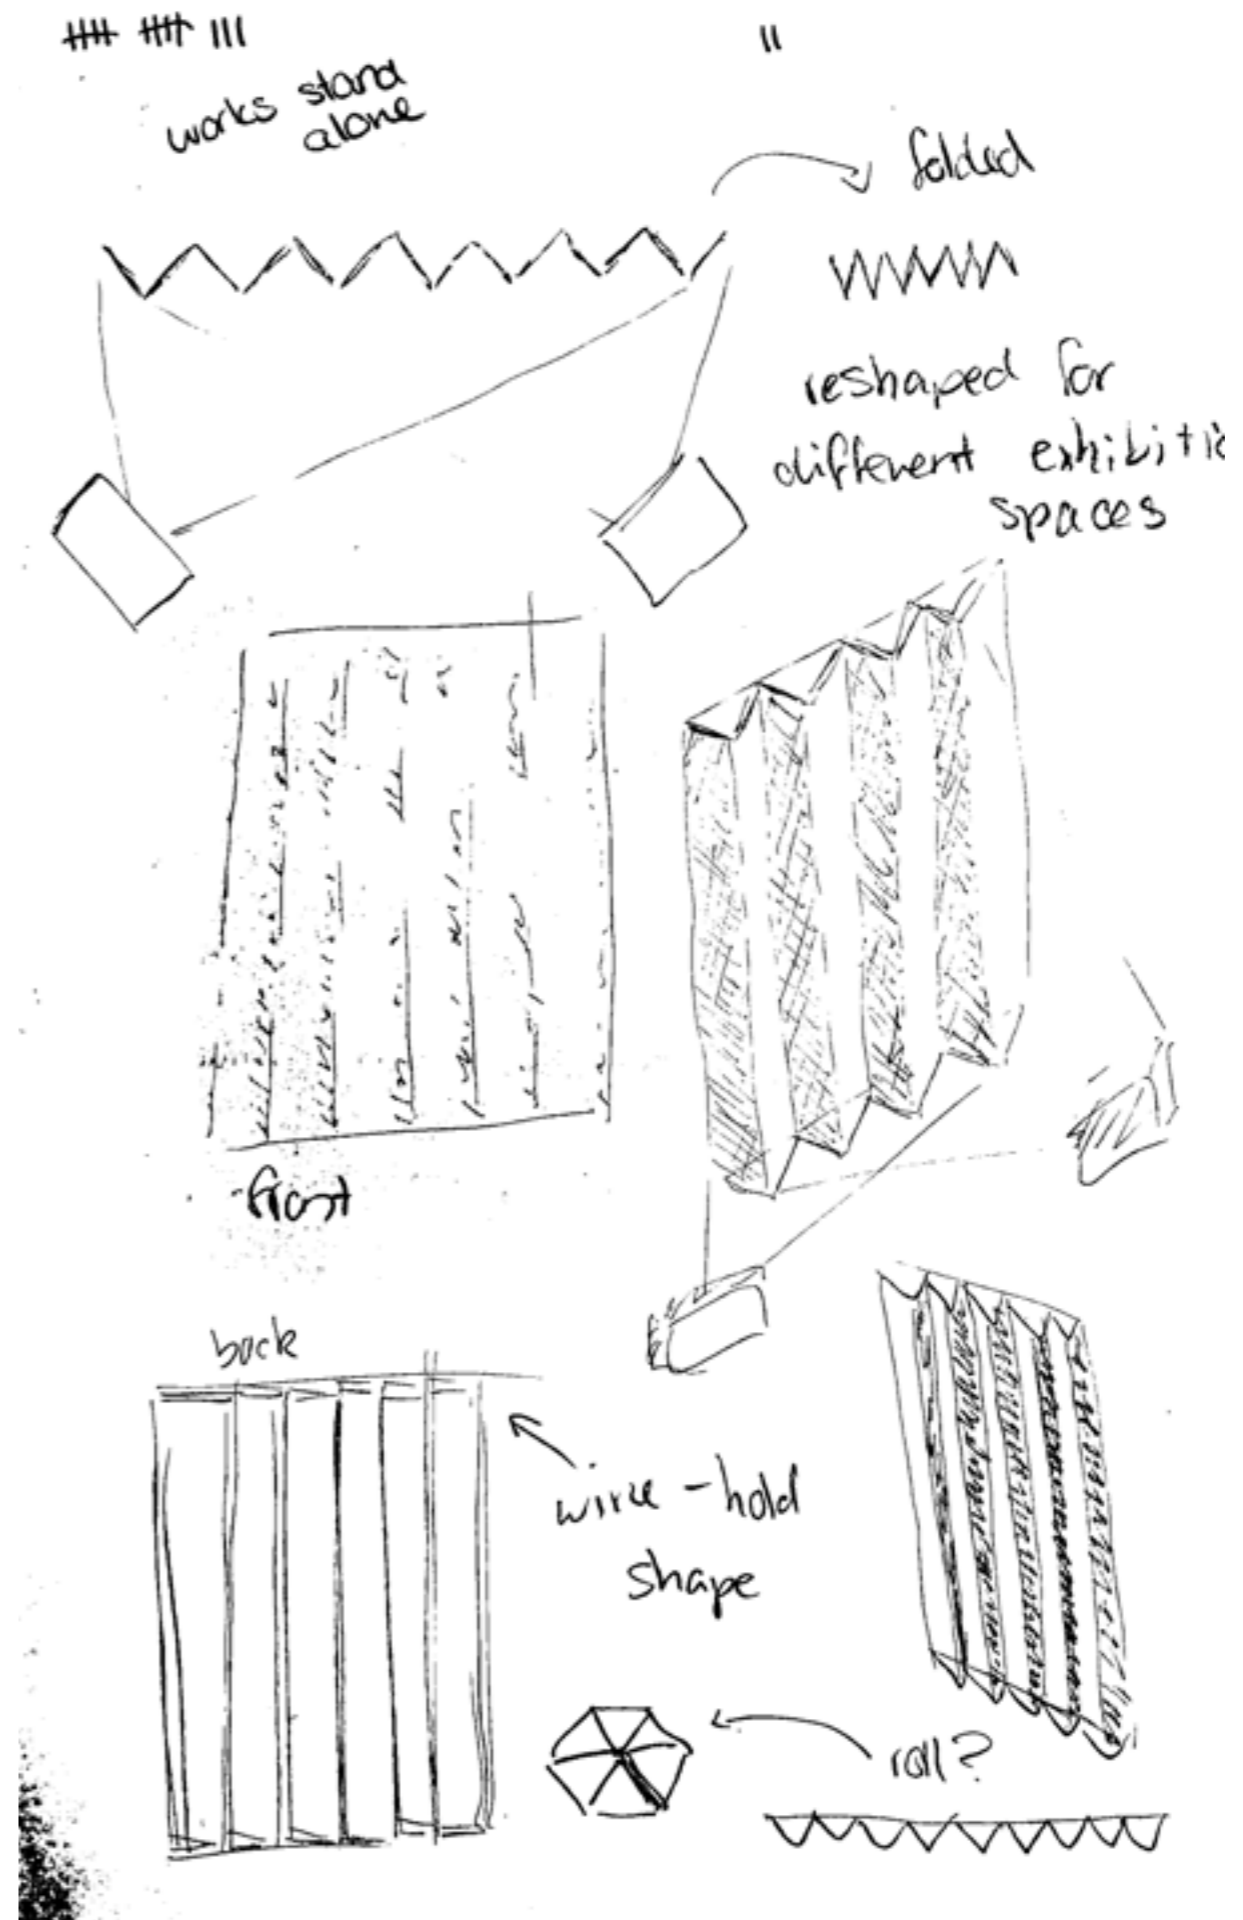 works stand
alone
folded
reshaped for
different exhibitio
spaces
front
back
wire - hold
shape
roll?